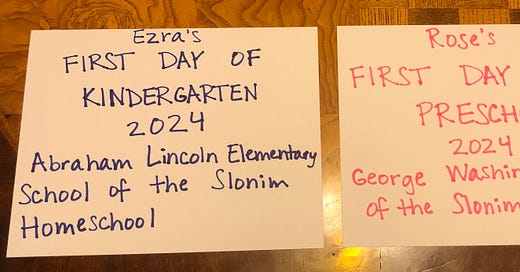 Ezra's
FIRST DAY OF
KINDERGARTEN
2024
Abraham Lincoln Elementary
School of the Slonim
Homeschool
Rose's
FIRST DAY
2024
George
of the Slonim